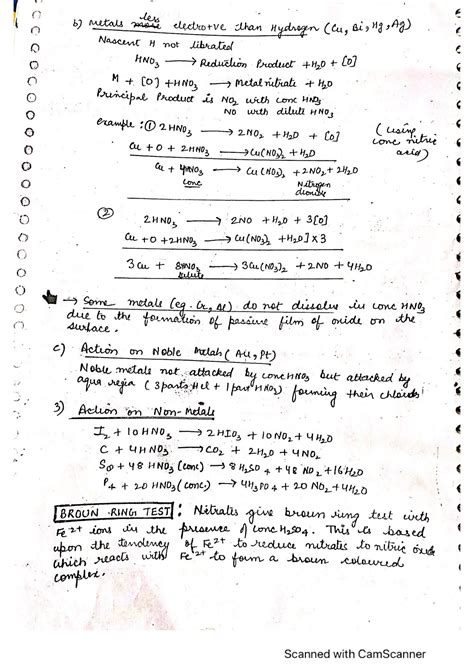 b) Metals less more electro+ve than Hydrogen (Cu, Bi, Hg, Ag)
Nascent H not librated
HNO3 → Reduction Product + H2O + [O]
M + [O] + HNO3 → Metal nitrate + H2O
Principal Product is NO2 with conc HNO3
NO with dilute HNO3
example : ① 2HNO3 → 2NO2 + H2O + [O]
(using conc nitric acid)
Cu + O + 2HNO3 → Cu(NO3)2 + H2O
Cu + 4HNO3 → Cu(NO3)2 + 2NO2 + 2H2O
conc Nitrogen dioxide
② 2HNO3 → 2NO + H2O + 3[O]
Cu + O + 2HNO3 → Cu(NO3)2 + H2O] X 3
3Cu + 8HNO3 → 3Cu(NO3)2 + 2NO + 4H2O
dilute
→ Some metals (eg. Cr, Al) do not dissolve in conc HNO3
due to the formation of passive film of oxide on the
surface.
c) Action on Noble Metals (Au, Pt)
Noble metals not attacked by conc HNO3 but attacked by
aqua regia (3 parts HCl + 1 part HNO3) forming their chlorides
3) Action on Non-Metals
I2 + 10HNO3 → 2HIO3 + 10NO2 + 4H2O
C + 4HNO3 → CO2 + 2H2O + 4NO2
S8 + 48HNO3 (conc) → 8H2SO4 + 48NO2 + 16H2O
P4 + 20HNO3 (conc.) → 4H3PO4 + 20NO2 + 4H2O
BROUN RING TEST : Nitrates give broun ring test with
Fe2+ ions in the presence of conc H2SO4. This is based
upon the tendency of Fe2+ to reduce nitrates to nitric oxide
which reacts with Fe2+ to form a broun coloured
complex.
Scanned with CamScanner